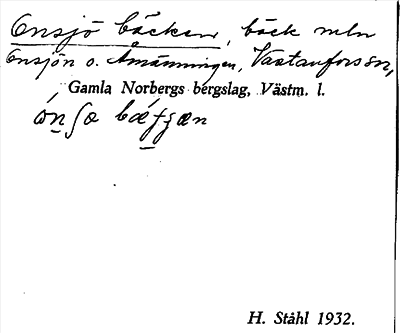 Ensjö bäcken, bäck mln
Ensjön o. Åmänningen, Västanfors sn,
Gamla Norbergs bergslag, Västm. l.
H. Ståhl 1932.